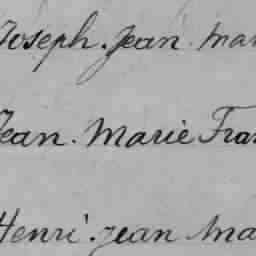 Joseph. Jean. Mar
Jean. Marie Fran
Henri. jean Ma